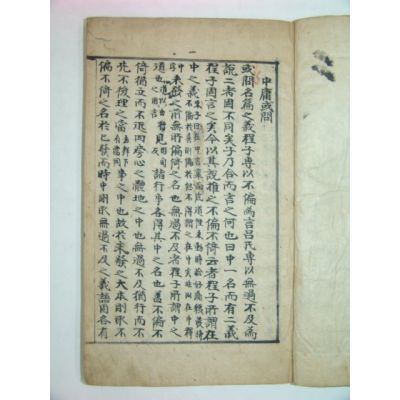 中庸或問
或問名篇之義程子專以不偏為言呂氏專以無過不及為
說二者固不同矣子乃合而言之何也曰中一名而有二義
程子固言之矣今以其說推之不偏不倚云者程子所謂在
中之義
未發之前無所偏倚之名也無過不及者程子所謂中之
道也見諸行事各得其中之名也蓋不偏不
倚猶立而不近四旁心之體地之中也無過不及猶行而不
先不後理之當事之中也故於未發之大本則取不
偏不倚之名於已發而時中則取無過不及之義語固各有